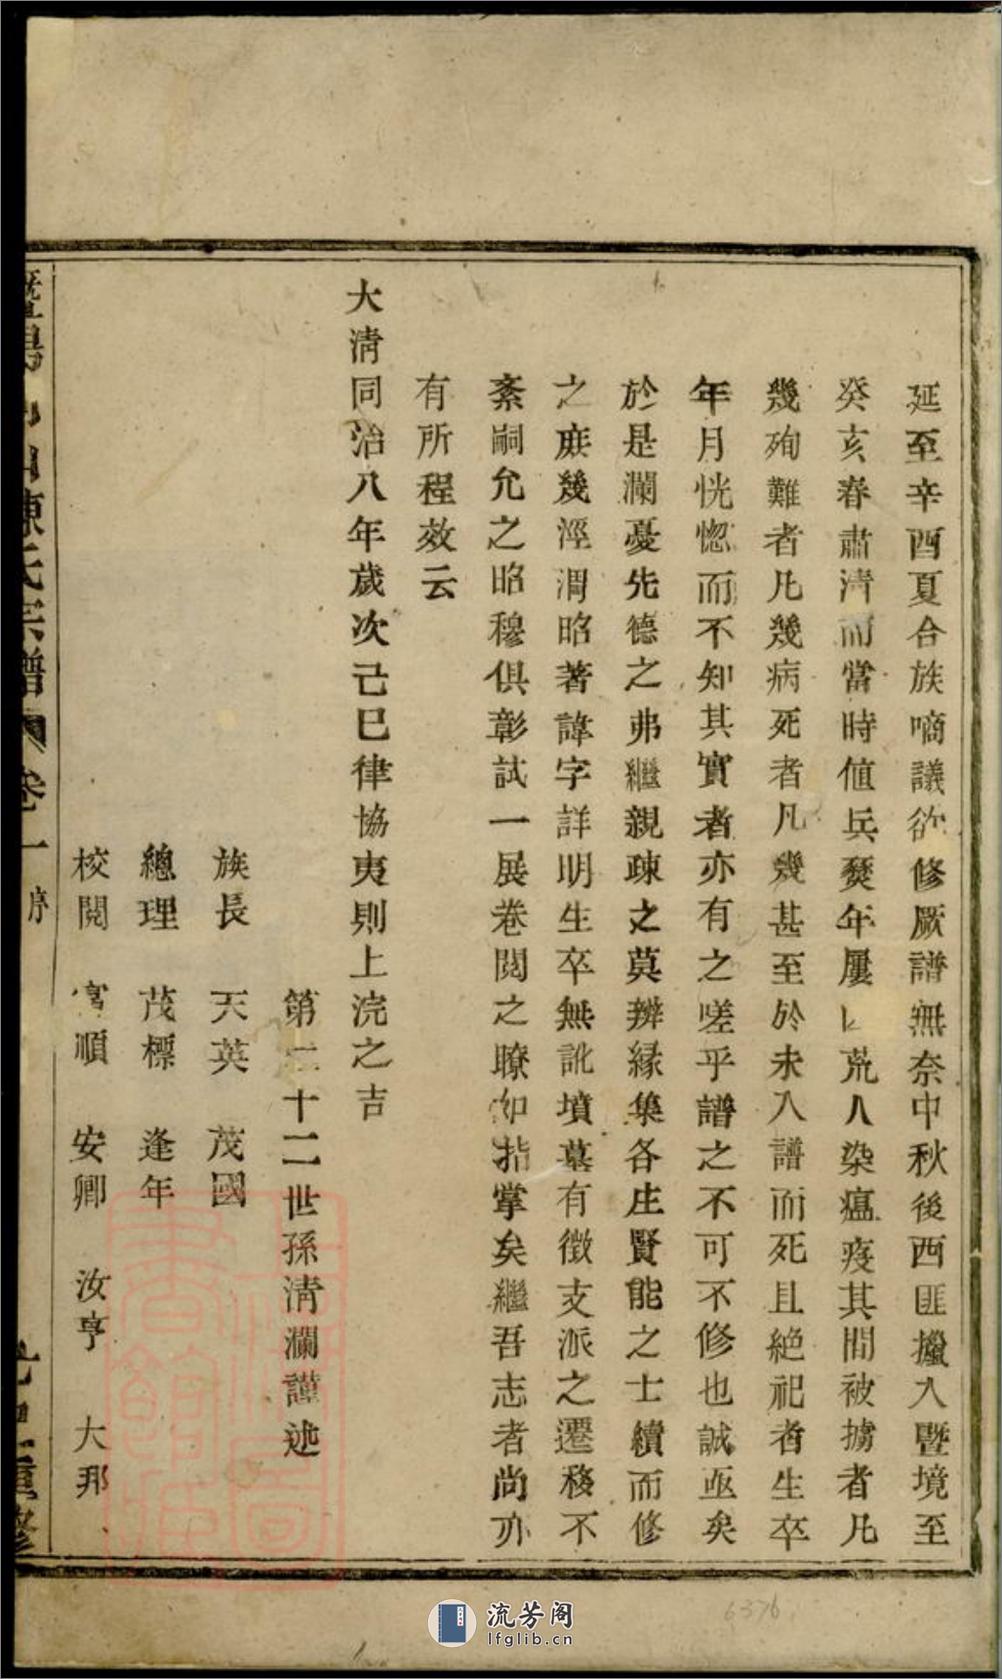 延至辛酉夏合族嘀議欲修厥譜無奈中秋後西匪擾入暨境至
癸亥春肅清而當時値兵燹年屢凶荒人染瘟疫其間被擄者凡
幾殉難者凡幾病死者凡幾甚至於未入譜而死且絶祀者生卒
年月恍惚而不知其實者亦有之嗟乎譜之不可不修也誠亟矣
於是瀾憂先德之弗繼親疎之莫辨縁集各庄賢能之士續而修
之庶幾涇渭昭著諱字詳明生卒無訛墳墓有徵支派之遷移不
紊嗣允之昭穆俱彰試一展卷閱之瞭如指掌矣繼吾志者尚亦
有所程效云
大淸同治八年歲次己巳律協夷則上浣之吉
第二十二世孫淸瀾謹述
族長 天英 茂國
總理 茂標 逢年
校閱 富順 安卿 汝亨 大邦
暨陽 山陳氏宗譜 卷一 序 重修
流芳阁
lfglib.cn
6376